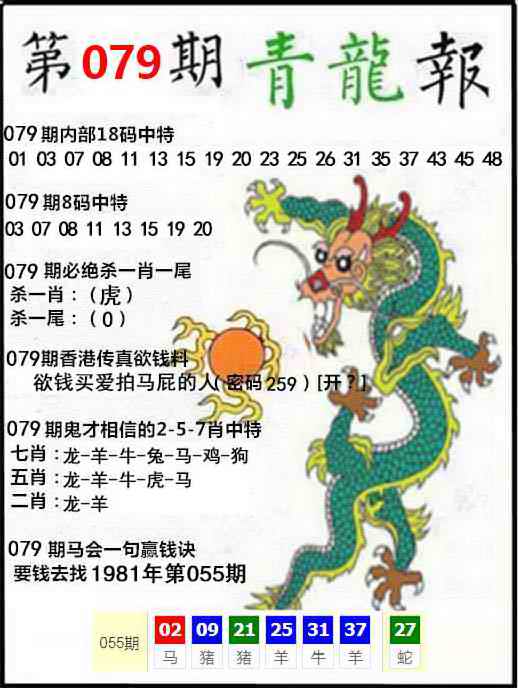 第079期 青龍報
079期内部18码中特
01 03 07 08 11 13 15 19 20 23 25 26 31 35 37 43 45 48
079期8码中特
03 07 08 11 13 15 19 20
079 期必绝杀一肖一尾
杀一肖：（虎）
杀一尾：（0）
079期香港传真欲钱料
欲钱买爱拍马屁的人（密码259）[开？]
079期鬼才相信的2-5-7肖中特
七肖：龙-羊-牛-兔-马-鸡-狗
五肖：龙-羊-牛-虎-马
二肖：龙-羊
079 期马会一句赢钱诀
要钱去找1981年第055期
055期 02 09 21 25 31 37 27
马 猪 猪 羊 牛 羊 蛇